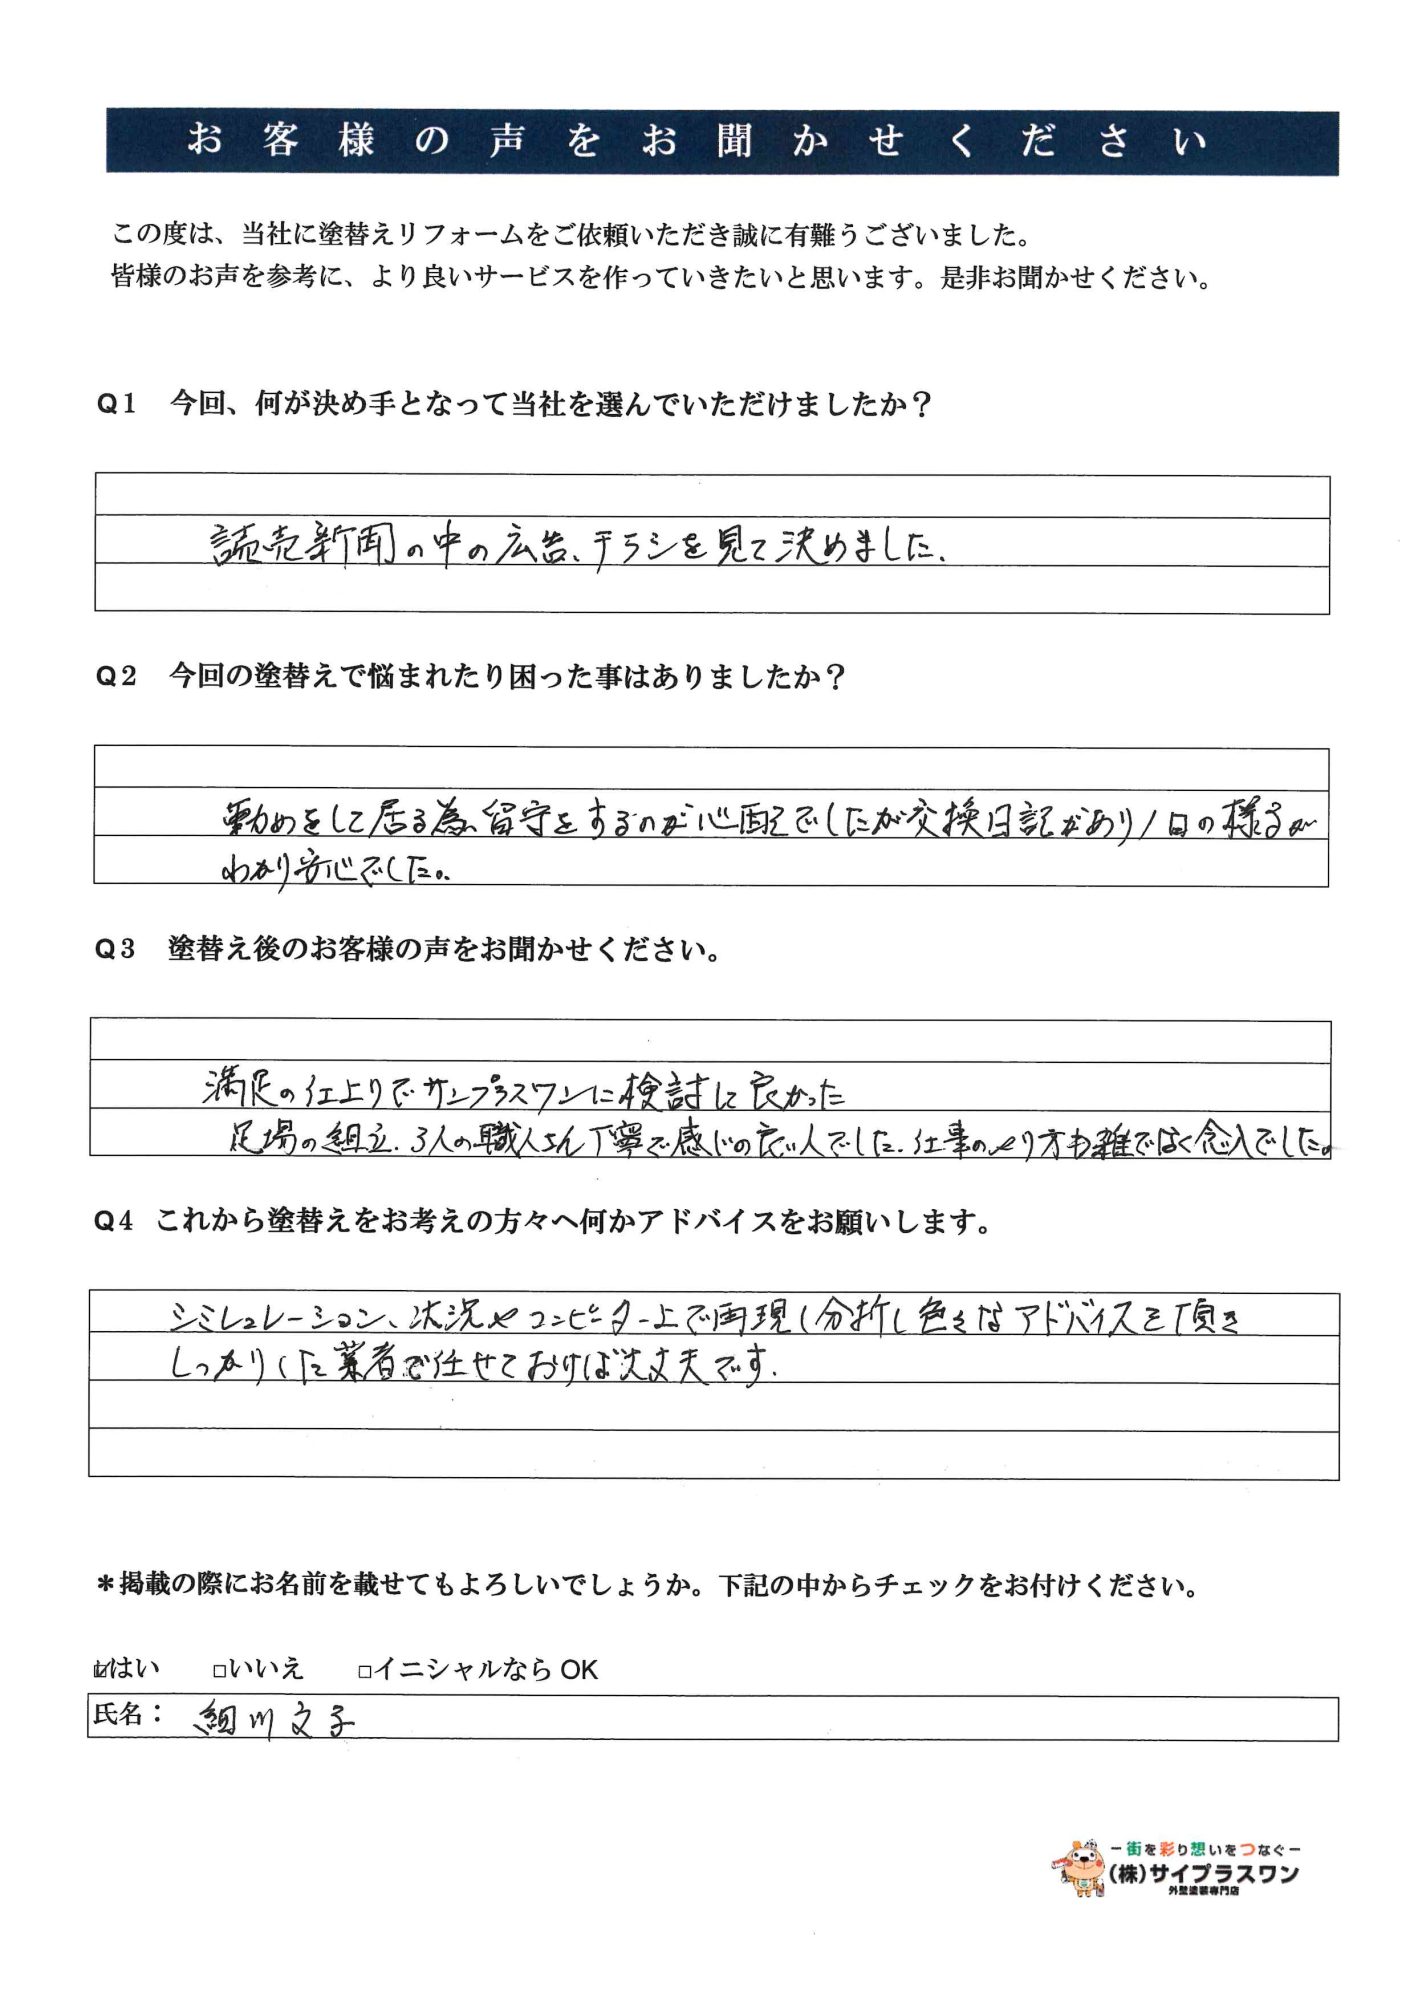 お客様の声をお聞かせください
この度は、当社に塗替えリフォームをご依頼いただき誠に有難うございました。
皆様のお声を参考に、より良いサービスを作っていきたいと思います。是非お聞かせください。
Q1 今回、何が決め手となって当社を選んでいただけましたか？
読売新聞の中の広告、チラシを見て決めました.
Q2 今回の塗替えで悩まれたり困った事はありましたか？
勤めをして居る為、留守をするのが心配でしたが交換日記があり1日の様子が
わかり安心でした。
Q3 塗替え後のお客様の声をお聞かせください。
満足の仕上りでサンプラスワンに検討して良かった
足場の組立、3人の職人さん丁寧で感じの良い人でした.仕事のやり方も雑ではなく念入でした。
Q4 これから塗替えをお考えの方々へ何かアドバイスをお願いします。
シミレュレーション、状況やコンピーター上で再現し分析し色々なアドバイスを頂き
しっかりした業者で任せておけば大丈夫です.
＊掲載の際にお名前を載せてもよろしいでしょうか。下記の中からチェックをお付けください。
☑はい □いいえ □イニシャルなら OK
氏名： 細川文子
ー街を彩り想いをつなぐー
(株)サイプラスワン
外壁塗装専門店